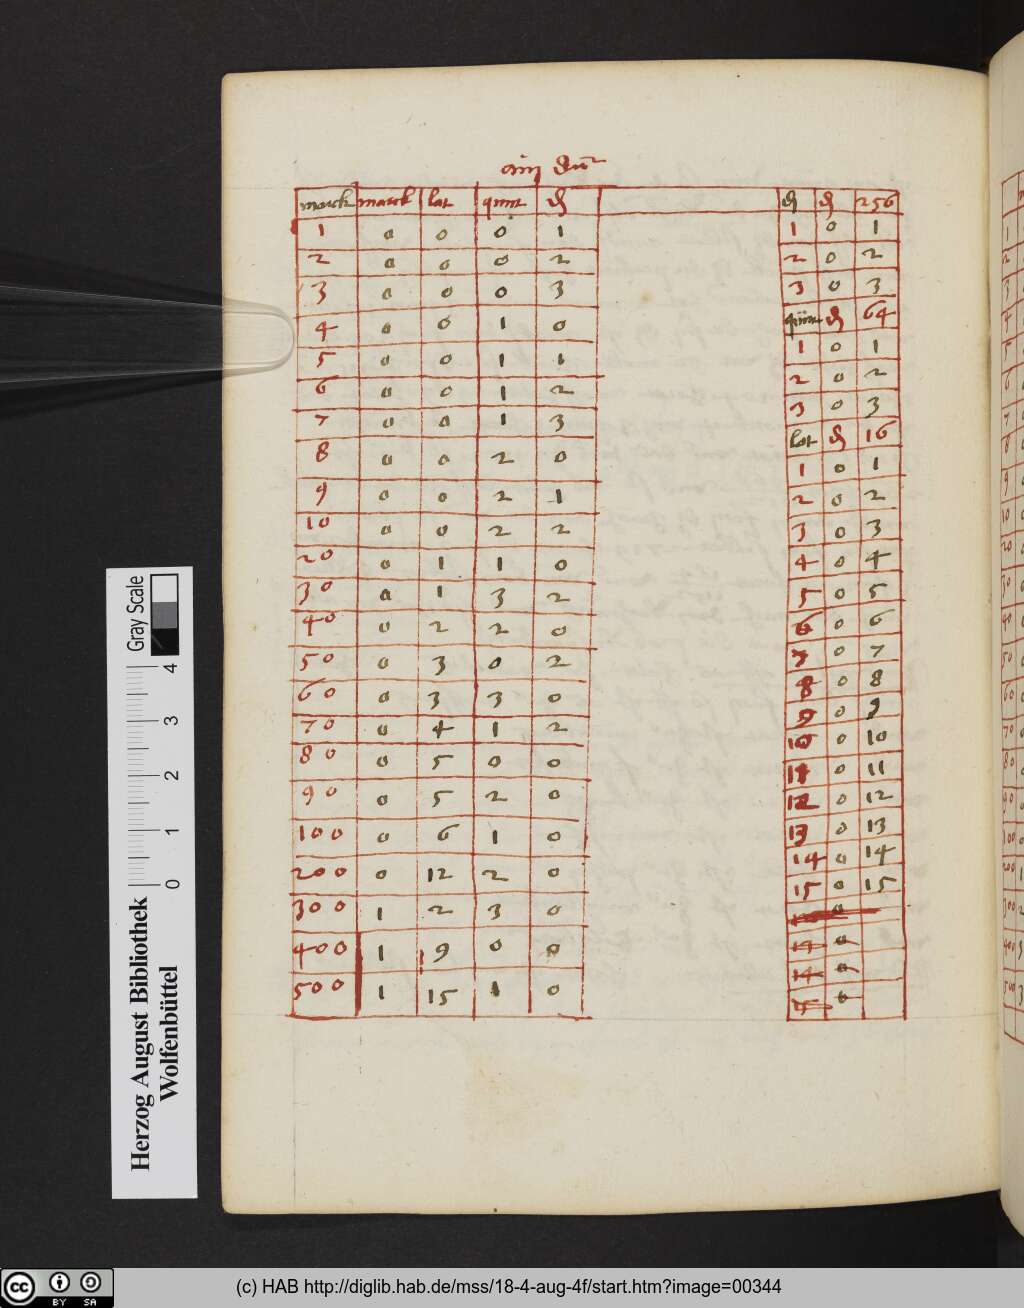 ain
marck marck lot quint ₰
1 0 0 0 1
2 0 0 0 2
3 0 0 0 3
4 0 0 1 0
5 0 0 1 1
6 0 0 1 2
7 0 0 1 3
8 0 0 2 0
9 0 0 2 1
10 0 0 2 2
20 0 1 1 0
30 0 1 3 2
40 0 2 2 0
50 0 3 0 2
60 0 3 3 0
70 0 4 1 2
80 0 5 0 0
90 0 5 2 0
100 0 6 1 0
200 0 12 2 0
300 1 2 3 0
400 1 9 0 0
500 1 15 1 0
₰ ₰ 256
1 0 1
2 0 2
3 0 3
quint ₰ 64
1 0 1
2 0 2
3 0 3
lot ₰ 16
1 0 1
2 0 2
3 0 3
4 0 4
5 0 5
6 0 6
7 0 7
8 0 8
9 0 9
10 0 10
11 0 11
12 0 12
13 0 13
14 0 14
15 0 15
0
13 0
14 0
15 0
Gray Scale
0 1 2 3 4
Herzog August Bibliothek
Wolfenbüttel
cc BY SA
(c) HAB http://diglib.hab.de/mss/18-4-aug-4f/start.htm?image=00344